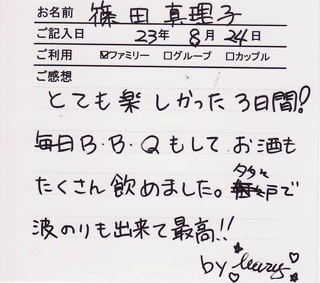 お名前 篠田真理子
ご記入日 23年 8月 24日
ご利用 ☑ファミリー □グループ □カップル
ご感想
とても楽しかった3日間!
毎日B・B・Qもして お酒も
たくさん飲めました。タタミで
波のりも出来て最高!!
by